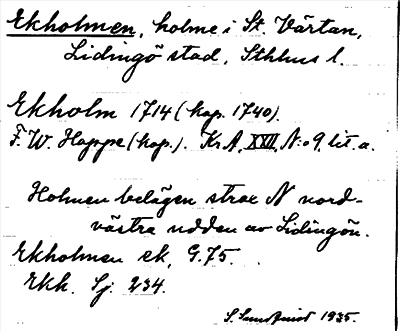 Ekholmen, holme i St. Värtan,
Lidingö stad, Sthlms l.
Ekholm 1714 (kop. 1740).
F. W. Happe (kop.). Kr A, XXII, N:o 9, lit. a.
Holmen belägen strax N nord-
västra udden av Lidingön.
Ekholmen ek, G.75.
Ekh. Sj. 234.
S. 1935.